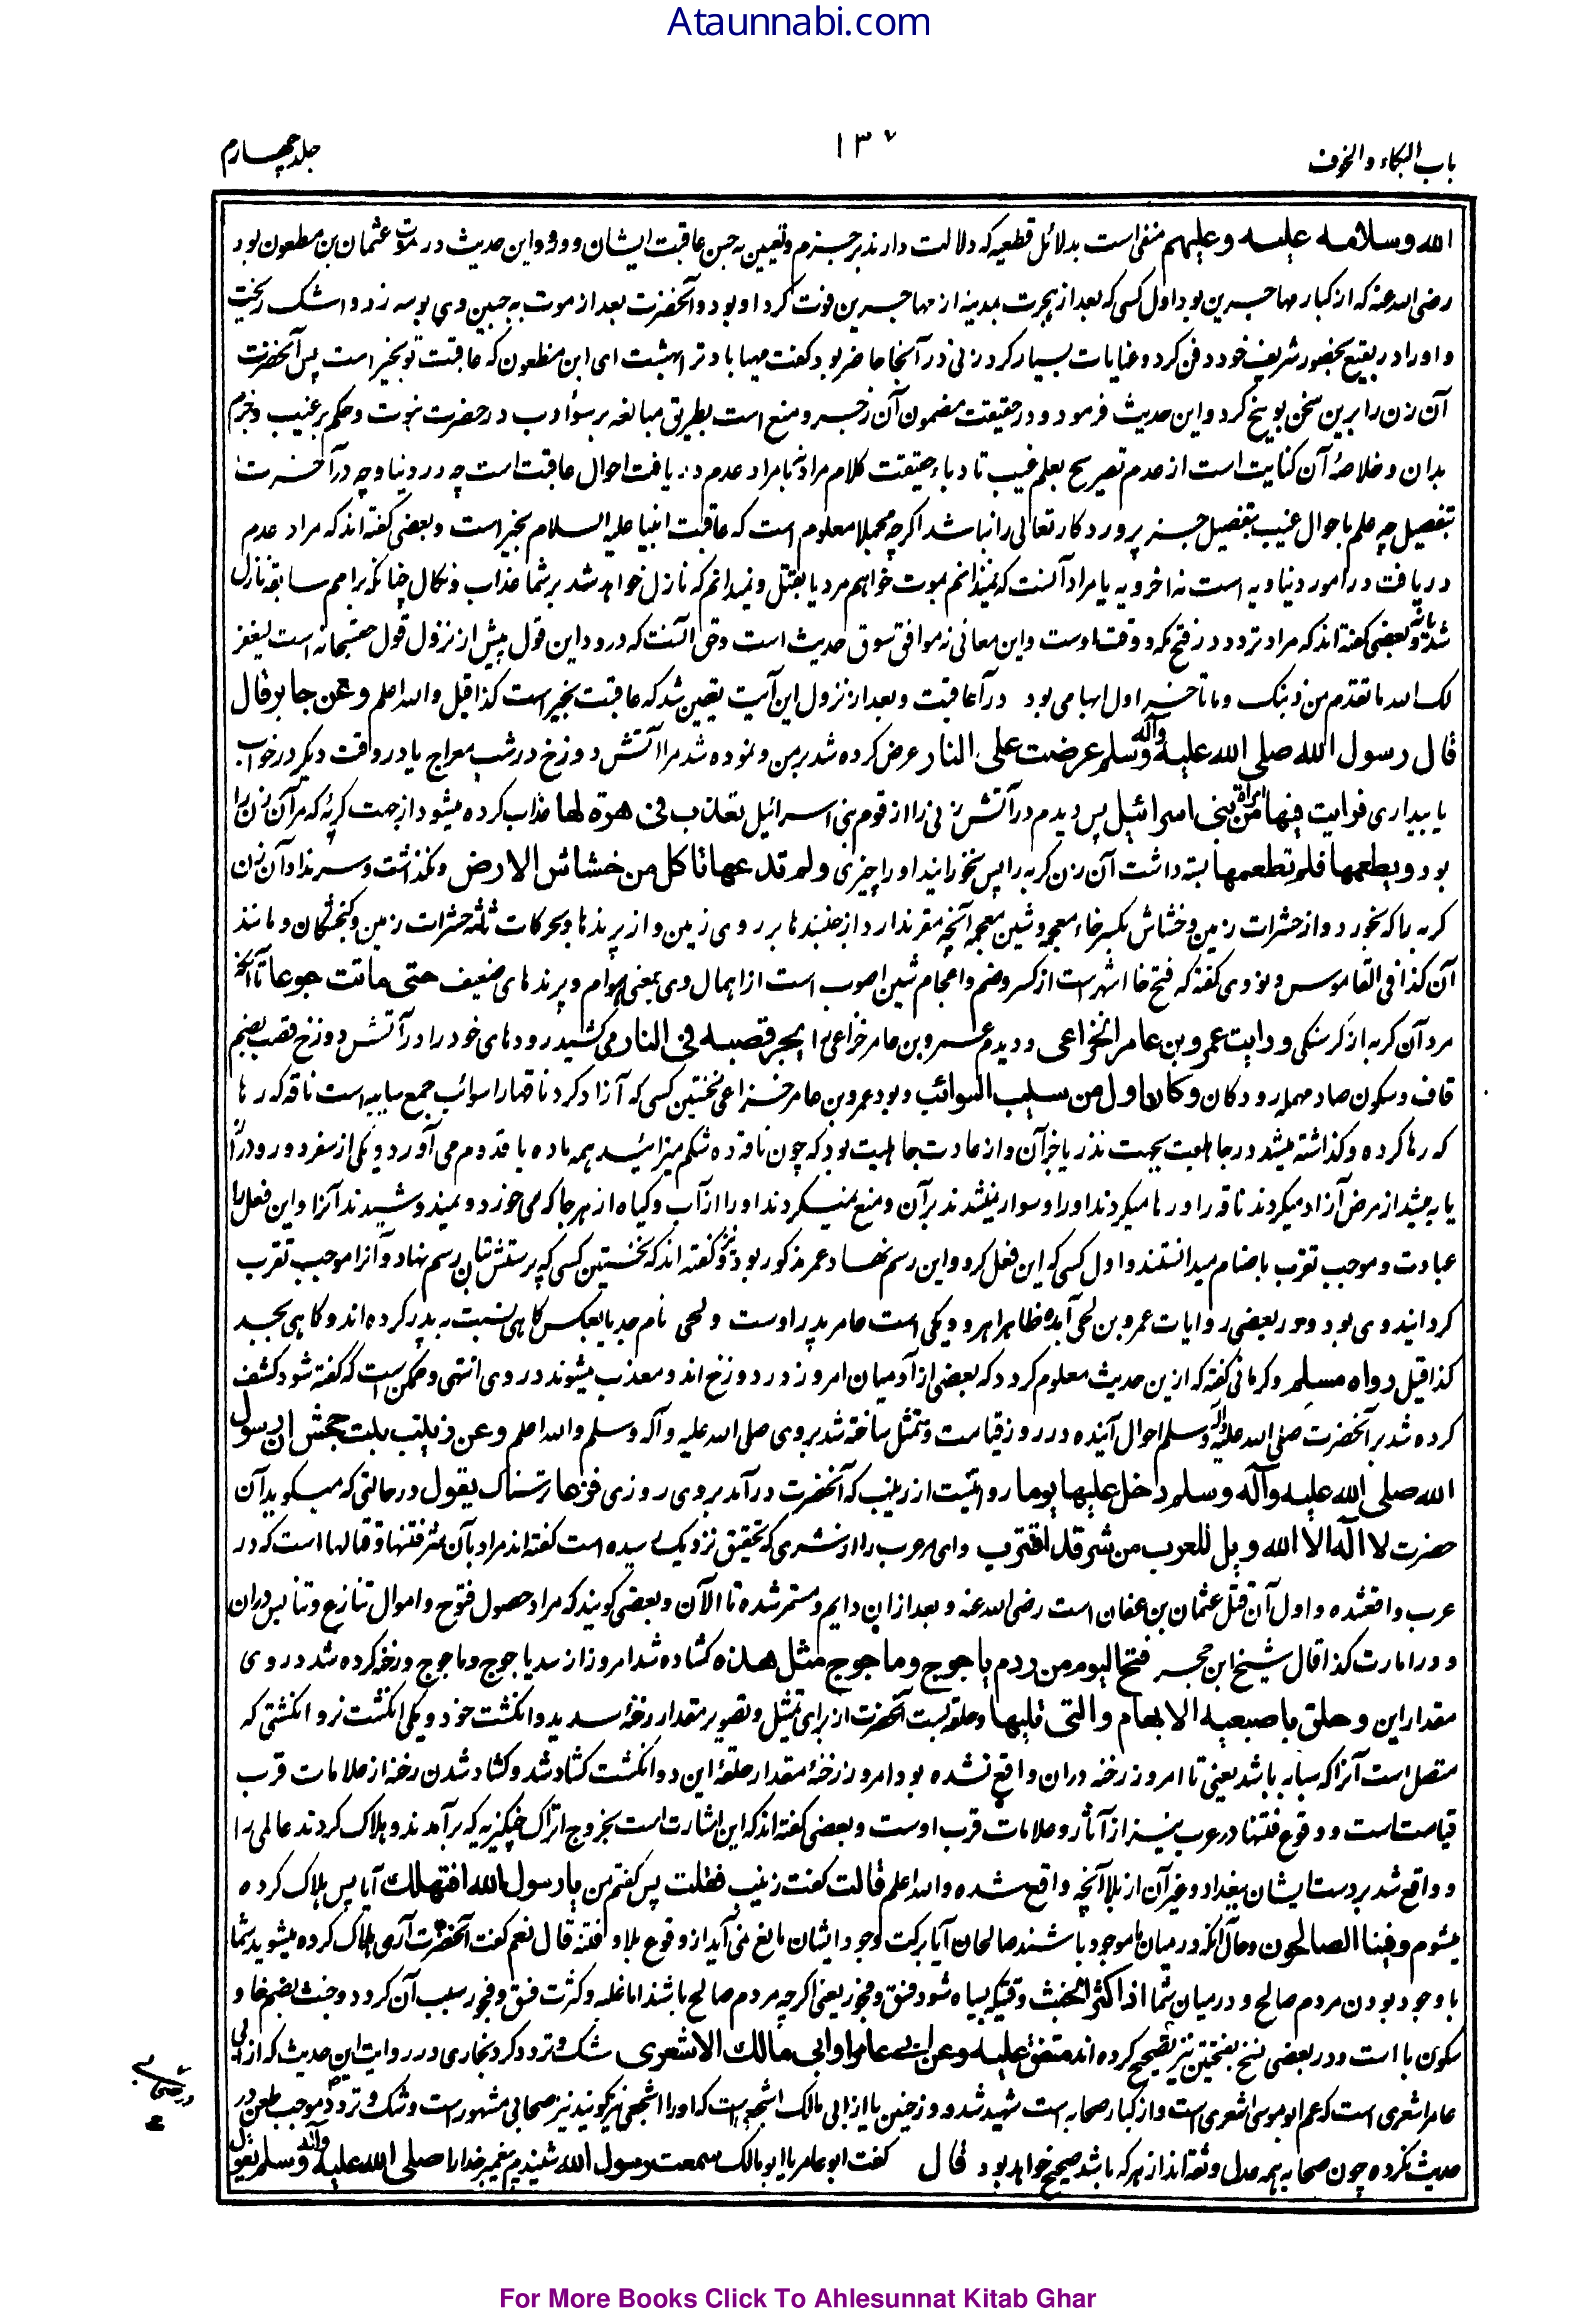 Ataunnabi.com
باب البکاء والخوف
۱۳۷
جلد چهارم
الله وسلامه علیه وعلیهم منفی است بدلائل قطعیه که دلالت دارند بر جزم وتعیین به حسن عاقبت ایشان وورود این حدیث در موت عثمان بن مظعون بود
رضی الله عنه که از کبار مهاجرین بود اول کسی که بعد از هجرت بمدینه از مهاجرین فوت کرد او بود وآنحضرت بعد از موت به جبین وی بوسه زد و اشک ریخت
و او را در بقیع بحضور شریف خود دفن کرد و عنایات بسیار کرد زنی در آنجا حاضر بود گفت مهیا باد ترا بهشت ای ابن مظعون که عاقبت تو بخیر است پس آنحضرت
آن زن را برین سخن توبیخ کرد واین حدیث فرمود و در حقیقت مضمون آن زجر و منع است بطریق مبالغه بر سوء ادب در حضرت نبوت وحکم بر غیب وجزم
بدان وخلاصهٔ آن کنایت است از عدم تصریح بعلم غیب تادبا وحقیقت کلام مراد نه یا مراد عدم دریافت احوال عاقبت است چه در دنیا وچه در آخرت
بتفصیل چه علم باحوال غیب بتفصیل جز پروردگار تعالی را نباشد اگرچه مجملا معلوم است که عاقبت انبیا علیهم السلام بخیر است وبعضی گفته اند که مراد عدم
دریافت در امور دنیاویه است نه اخرویه یا مراد آنست که نمیدانم بموت خواهم مرد یا بقتل ونمیدانم که نازل خواهد شد بر شما عذاب ونکال چنانکه بر امم سابقه نازل
شد یا نه وبعضی گفته اند که مراد تردد در فتح مکه ووقت اوست واین معانی نه موافق سوق حدیث است وحق آنست که ورود این قول پیش از نزول قول حق سبحانه است لیغفر
لک الله ما تقدم من ذنبک وما تاخر اول ابهامی بود در آن عاقبت وبعد از نزول این آیت یقین شد که عاقبت بخیر است کذا قیل والله اعلم وعن جابر قال
قال رسول الله صلی الله علیه وآله وسلم عرضت علی النار عرض کرده شد بر من ونموده شد مرا آتش دوزخ در شب معراج یا در وقت دیگر در خواب
یا بیداری فرایت فیها امراة من بنی اسرائیل پس دیدم در آتش زنی را از قوم بنی اسرائیل تعذب فی هرة لها عذاب کرده میشود از جهت گربهٔ که مر آن زن را
بود ربطتها فلم تطعمها بسته داشت آن زن گربه را پس نخورانید او را چیزی ولم تدعها تاکل من خشاش الارض ونگذاشت وسر نداد آن زن
گربه را که بخورد از حشرات زمین وخشاش بکسر خاء معجمه وشین معجمه آنچه مغز ندارد از جنبندها بر روی زمین واز پرندها وبحرکات ثلثه حشرات زمین وگنجشکان ومانند
آن کذا فی القاموس ونووی گفته که فتح خا اشهر است از کسر وضم واعجام شین اصوب است از اهمال وی بمعنی هوام وپرندهای ضعیف حتی ماتت جوعا تا آنکه
مرد آن گربه از گرسنگی ورایت عمرو بن عامر الخزاعی ودیدم عمرو بن عامر خزاعی را یجر قصبه فی النار می کشید رودهای خود را در آتش دوزخ قصب بضم
قاف وسکون صاد مهمله رودگان وکان اول من سیب السوائب وبود عمرو بن عامر خزاعی نخستین کسی که آزاد کرد ناقها را سوائب جمع سایبه است ناقه که رها
که رها کرده وگذاشته میشد در جاهلیت بجهت نذر یا جز آن واز عادت جاهلیت بود که چون ناقه ده شکم میزائید همه ماده یا قدوم می آورد یکی از سفر دور ودراز
یا به میشد از مرض آزاد میکردند ناقه را ورها میکردند او را وسوار نمیشدند بر آن ومنع نمیکردند او را از آب وگیاه از هر جا که می خورد ونمیدوشیدند آنرا واین فعل را
عبادت وموجب تقرب باصنام میدانستند واول کسی که این فعل کرد واین رسم نهاد عمر مذکور بود ونیز گفته اند که نخستین کسی که پرستش بتان رسم نهاد وآنرا موجب تقرب
گردانید وی بود ودر بعضی روایات عمرو بن لحی آمده ظاهرا هر دو یکی است عامر پدر اوست ولحی نام جد یا بعکس گاهی نسبت به پدر کرده اند وگاهی بجد
کذا قیل رواه مسلم وکرمانی گفته که ازین حدیث معلوم گردد که بعضی از آدمیان امروز در دوزخ اند ومعذب میشوند در وی انتهی وممکن است که گفته شود کشف
کرده شد بر آنحضرت صلی الله علیه وآله وسلم احوال آینده در روز قیامت ومتمثل ساخته شد بر وی صلی الله علیه وآله وسلم والله اعلم وعن زینب بنت جحش ان رسول
الله صلی الله علیه وآله وسلم دخل علیها یوما روایتست از زینب که آنحضرت در آمد بروی روزی فزعا ترسناک یقول در حالتی که میگوید آن
حضرت لا اله الا الله ویل للعرب من شر قد اقترب وای مر عرب را از شری که بتحقیق نزدیک رسیده است گفته اند مراد بآن شر فتنها وقتالها است که در
عرب واقع شده واول آن قتل عثمان بن عفان است رضی الله عنه وبعد ازان دایم ومستمر شده تا الآن وبعضی گویند که مراد حصول فتوح واموال تنازع وتنافس دران
ودر امارت کذا قال شیخ ابن حجر فتح الیوم من ردم یاجوج وماجوج مثل هذه گشاده شد امروز از سد یاجوج وماجوج ورخنه کرده شد در وی
مقدار این وحلق باصبعیه الابهام والتی تلیها وحلقه بست آنحضرت از برای تمثیل وتصویر مقدار رخنهٔ سد بدو انگشت خود یکی انگشت نر وانگشتی که
متصل است آنرا که سبابه باشد یعنی تا امروز رخنه دران واقع نشده بود امروز رخنهٔ مقدار حلقهٔ این دو انگشت گشاد شد وگشاد شدن رخنه از علامات قرب
قیامت است ووقوع فتنها در عرب نیز از آثار وعلامات قرب اوست وبعضی گفته اند که این اشارت است بخروج اتراک چنگیزیه که برآمدند وهلاک کردند عالمی را
وواقع شد بر دست ایشان ببغداد وغیر آن از بلا آنچه واقع شده والله اعلم قالت گفت زینب فقلت پس گفتم من یا رسول الله افنهلک آیا پس هلاک کرده
میشوم وفینا الصالحون وحال آنکه در میان ما موجود باشند صالحان آیا برکت وجود ایشان مانع نمی آید از وقوع بلا وفتنه قال نعم گفت آنحضرت آری هلاک کرده میشوید شما
با وجود بودن مردم صالح ودر میان شما اذا کثر الخبث وقتیکه بسیار شود فسق وفجور یعنی اگرچه مردم صالح باشند اما غلبه وکثرت فسق وفجور سبب آن گردد وخبث بضم خا و
سکون با است ودر بعضی نسخ بفتحتین نیز تصحیح کرده اند متفق علیه وعن ابی عامر او ابی مالک الاشعری شک وتردد کرد بخاری در روایت این حدیث که از ابی
عامر اشعری است که عم ابو موسی اشعری است واز کبار صحابه است شهید شد در روز حنین یا از ابی مالک اشجعی است که او را اشجعی نیز گویند نیز صحابی مشهور است وشک وتردد موجب طعن در
حدیث نگردد چون صحابه همه عدل وثقه اند از هر که باشد صحیح خواهد بود قال گفت ابو عامر یا ابو مالک سمعت رسول الله شنیدم پیغمبر خدا را صلی الله علیه وآله وسلم یقول
For More Books Click To Ahlesunnat Kitab Ghar